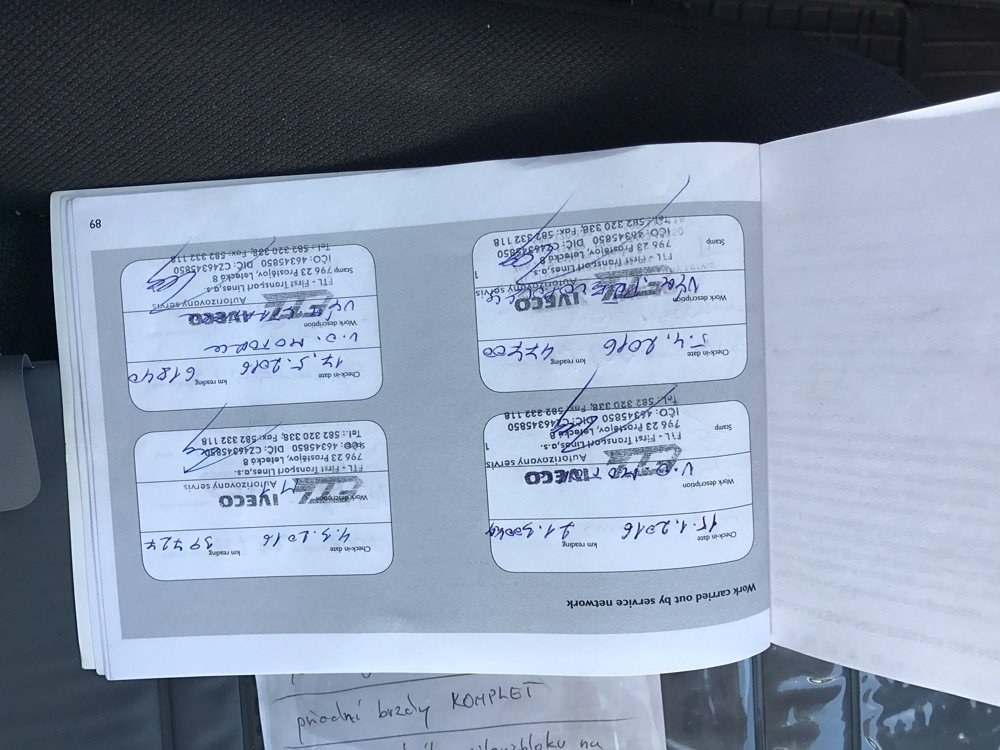 Work carried out by service network
Check-in date 15.1.2016 km reading 21.300km
Work description V.O. MOTOR
IVECO
Autorizovaný servis
FTL - First Transport Lines,a.s. 1
Stamp 796 23 Prostějov, Letecká 8
IČO: 46345850 DIČ: CZ46345850
Tel.: 582 320 338, Fax: 582 332 118
Check-in date 4.3.2016 km reading 39727
Work description M1
FTL IVECO
Autorizovaný servis
FTL - First Transport Lines,a.s.
796 23 Prostějov, Letecká 8
Stamp IČO: 46345850 DIČ: CZ46345850
Tel.: 582 320 338, Fax: 582 332 118
Check-in date 5.4.2016 km reading 47700
Work description
IVECO
Autorizovaný servis
FTL - First Transport Lines,a.s. 1
796 23 Prostějov, Letecká 8
Stamp IČO: 46345850 DIČ: CZ46345850
Tel.: 582 320 338, Fax: 582 332 118
Check-in date 17.5.2016 km reading 61840
Work description V.O. MOTOR
FTL IVECO
Autorizovaný servis
FTL - First Transport Lines,a.s.
Stamp 796 23 Prostějov, Letecká 8
IČO: 46345850 DIČ: CZ46345850
Tel.: 582 320 338, Fax: 582 332 118
89
přední brzdy KOMPLET
na